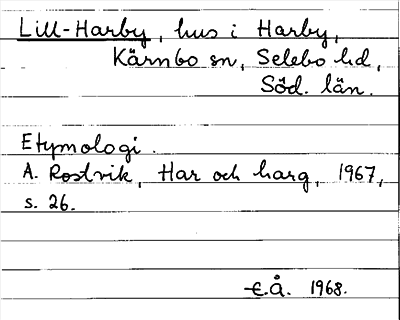 Lill-Harby, hus i Harby,
Kärnbo sn, Selebo hd,
Söd. län.
Etymologi.
A. Rostvik, Har och harg, 1967,
s. 26.
E.Å. 1968.